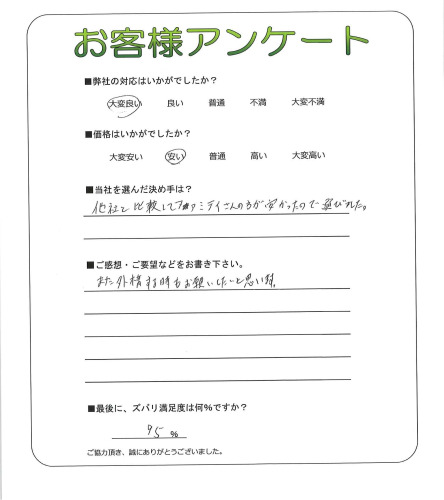 お客様アンケート
■弊社の対応はいかがでしたか？
大変良い 良い 普通 不満 大変不満
■価格はいかがでしたか？
大変安い 安い 普通 高い 大変高い
■当社を選んだ決め手は？
他社と比較してファミテイさんの方が安かったので選びました。
■ご感想・ご要望などをお書き下さい。
また外構する時もお願いしたいと思います。
■最後に、ズバリ満足度は何%ですか？
95 %
ご協力頂き、誠にありがとうございました。